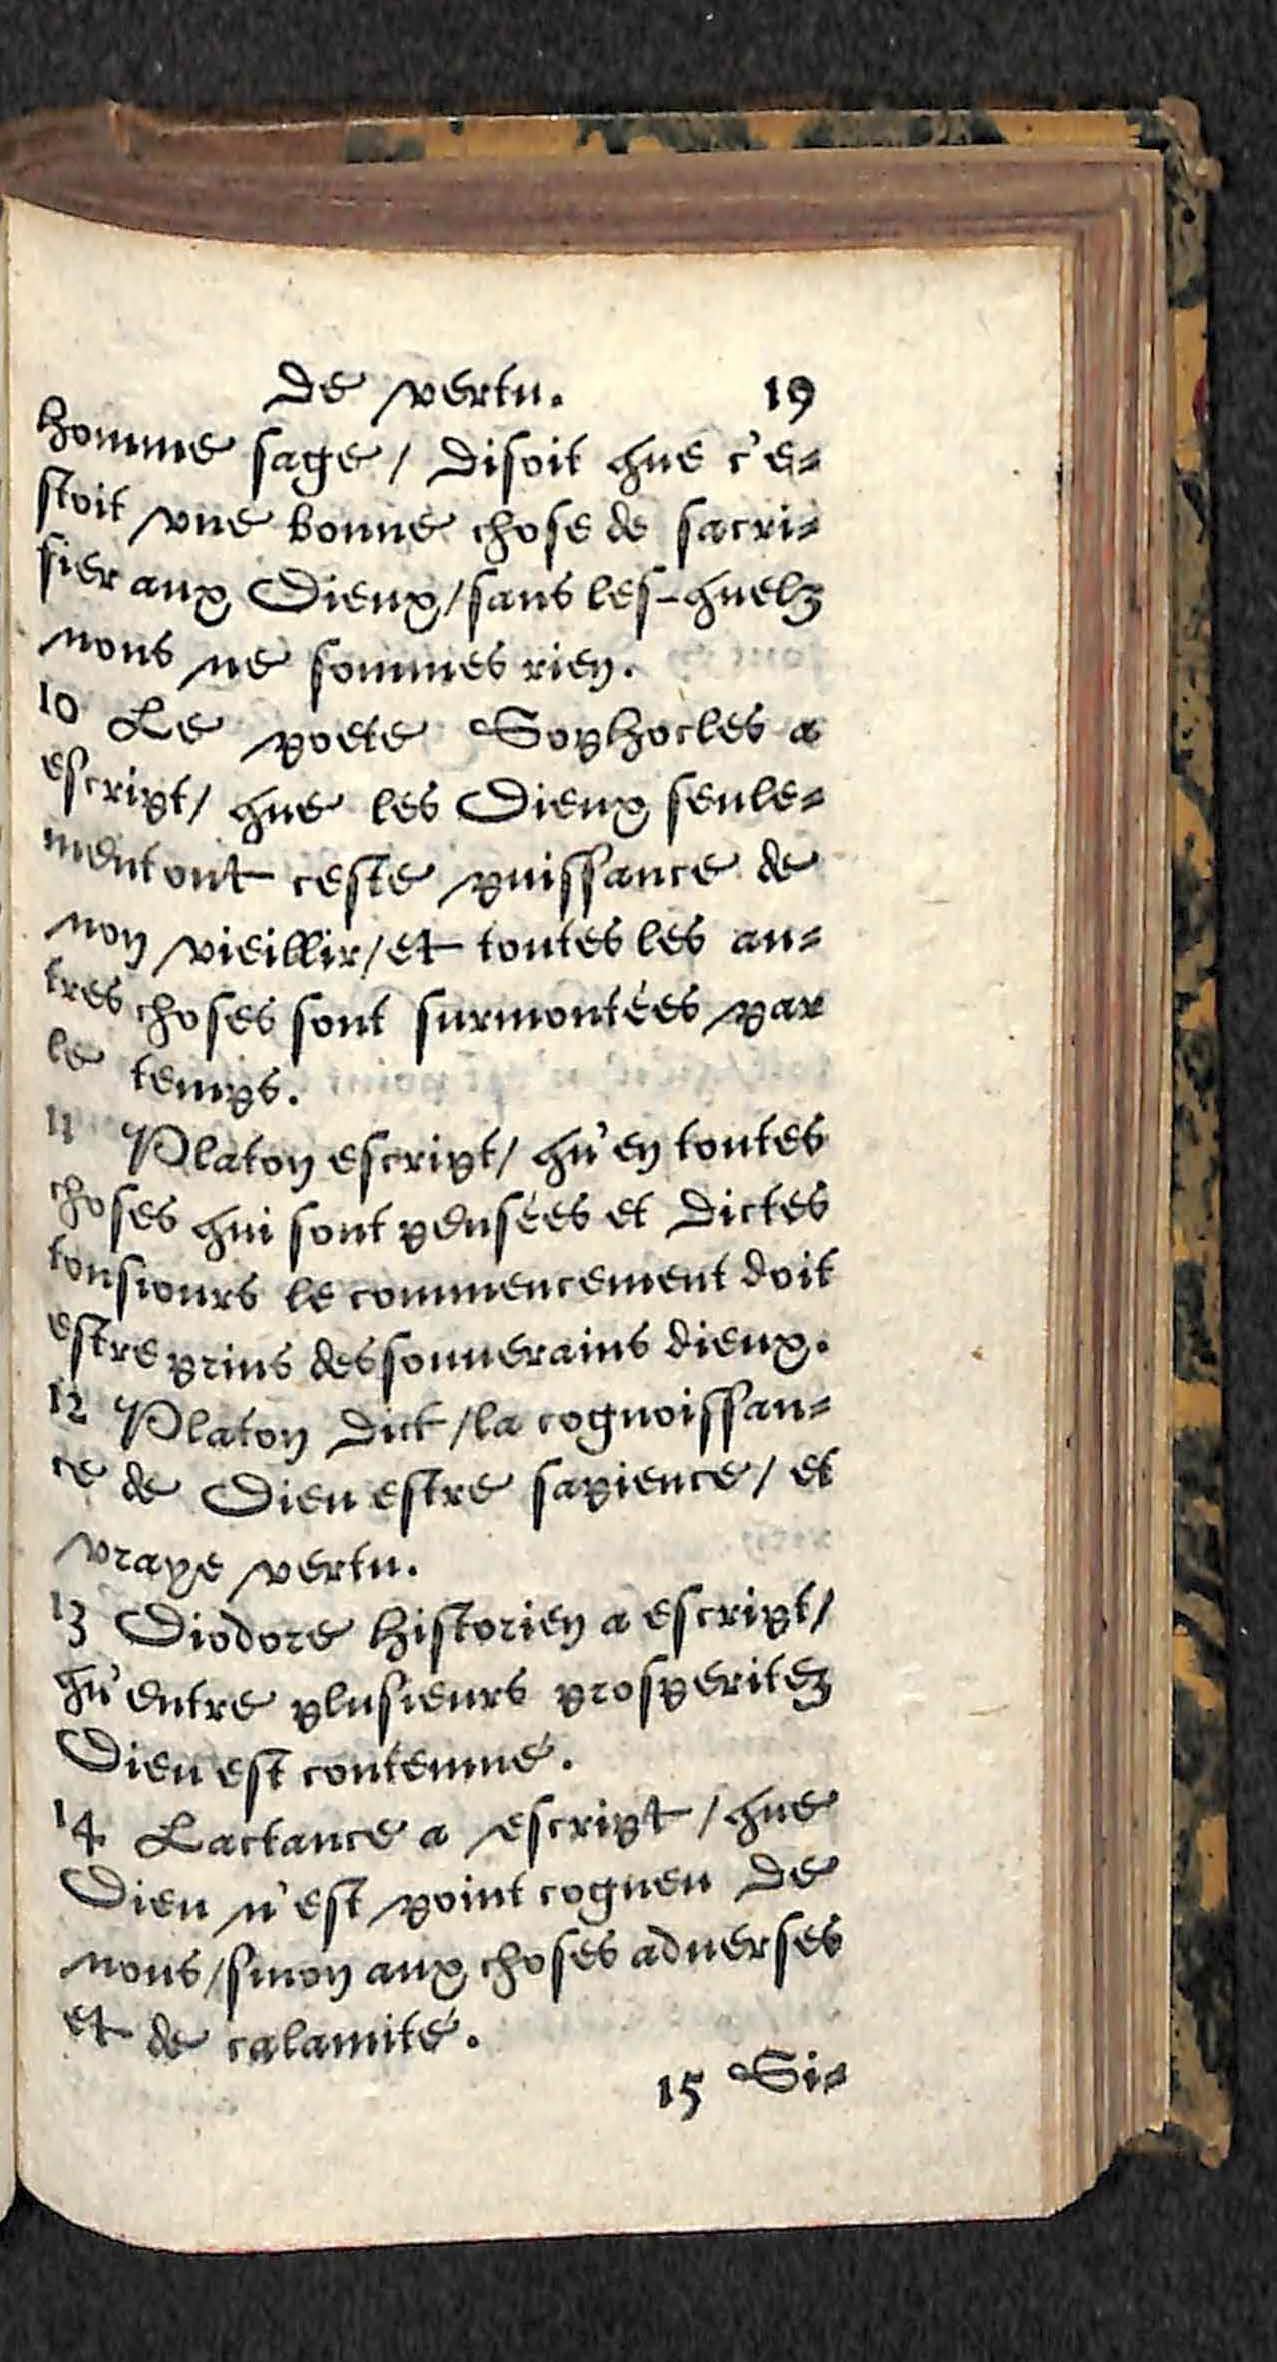 De vertu. 19
homme sage / disoit que c'e-
stoit vne bonne chose de sacri-
fier aux Dieux / sans les-quelz
nous ne sommes rien.
10 Le poete Sophocles a
escript / que les Dieux seule-
ment ont ceste puissance de
non vieillir / et toutes les au-
tres choses sont surmontées par
le temps.
11 Platon escript / qu'en toutes
choses qui sont pensées et dictes
tousiours le commencement doit
estre prins des souuerains dieux.
12 Platon dict / la cognoissan-
ce de Dieu estre sapience / et
vraye vertu.
13 Diodore historien a escript /
qu'entre plusieurs prosperitez
Dieu est contemné.
14 Lactance a escript / que
Dieu n'est point cogneu de
nous / sinon aux choses aduerses
et de calamité.
15 Si-